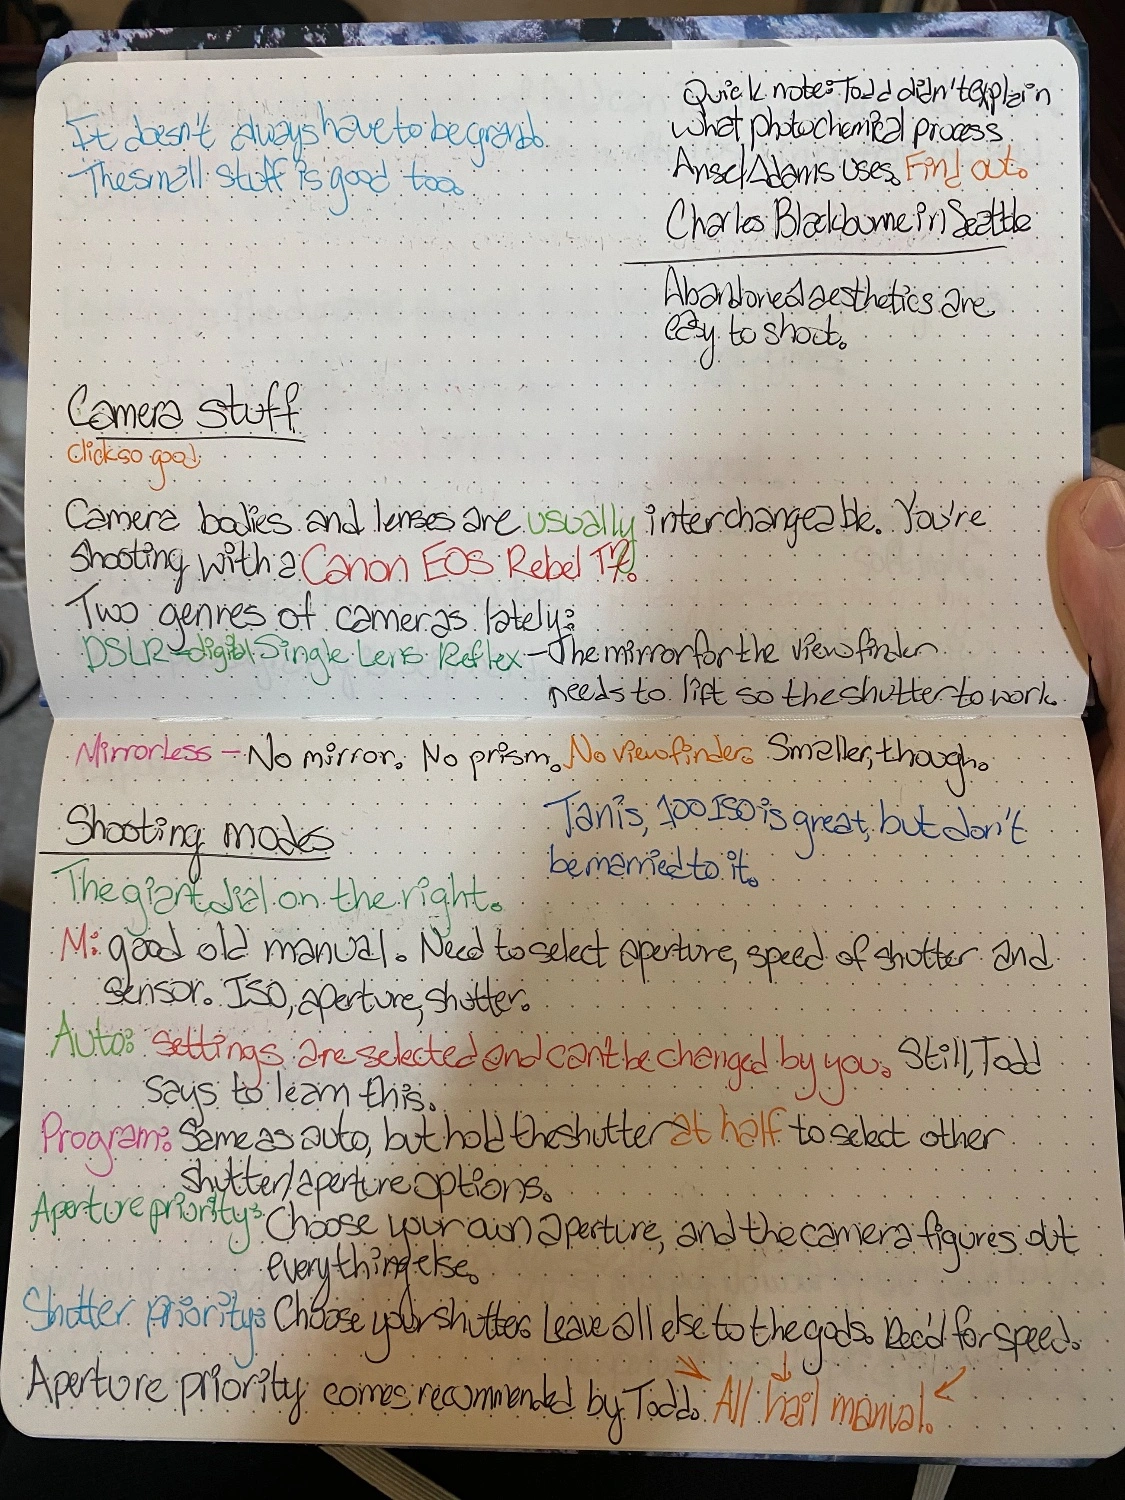 It doesn't always have to be grand.
The small stuff is good too.
Quick note: Todd didn't explain
what photochemical process
Ansel Adams uses. Find out.
Charles Blackburne in Seattle
Abandoned aesthetics are
easy to shoot.
Camera stuff
Click so good
Camera bodies and lenses are usually interchangeable. You're
shooting with a Canon EOS Rebel
Two genres of cameras lately:
DSLR - digital Single Lens Reflex - The mirror for the viewfinder
needs to lift so the shutter to work.
Mirrorless - No mirror. No prism. No viewfinder. Smaller, though.
Shooting modes
Tanis, 100 ISO is great, but don't
be married to it.
The giant dial on the right.
M: good old manual. Need to select aperture, speed of shutter and
sensor. ISO, aperture, shutter.
Auto: Settings are selected and can't be changed by you. Still, Todd
says to learn this.
Program: Same as auto, but hold the shutter at half to select other
shutter/aperture options.
Aperture priority: Choose your own aperture, and the camera figures out
everything else.
Shutter priority: Choose your shutter. Leave all else to the gods. Rec'd for speed.
Aperture priority comes recommended by Todd. All hail manual.